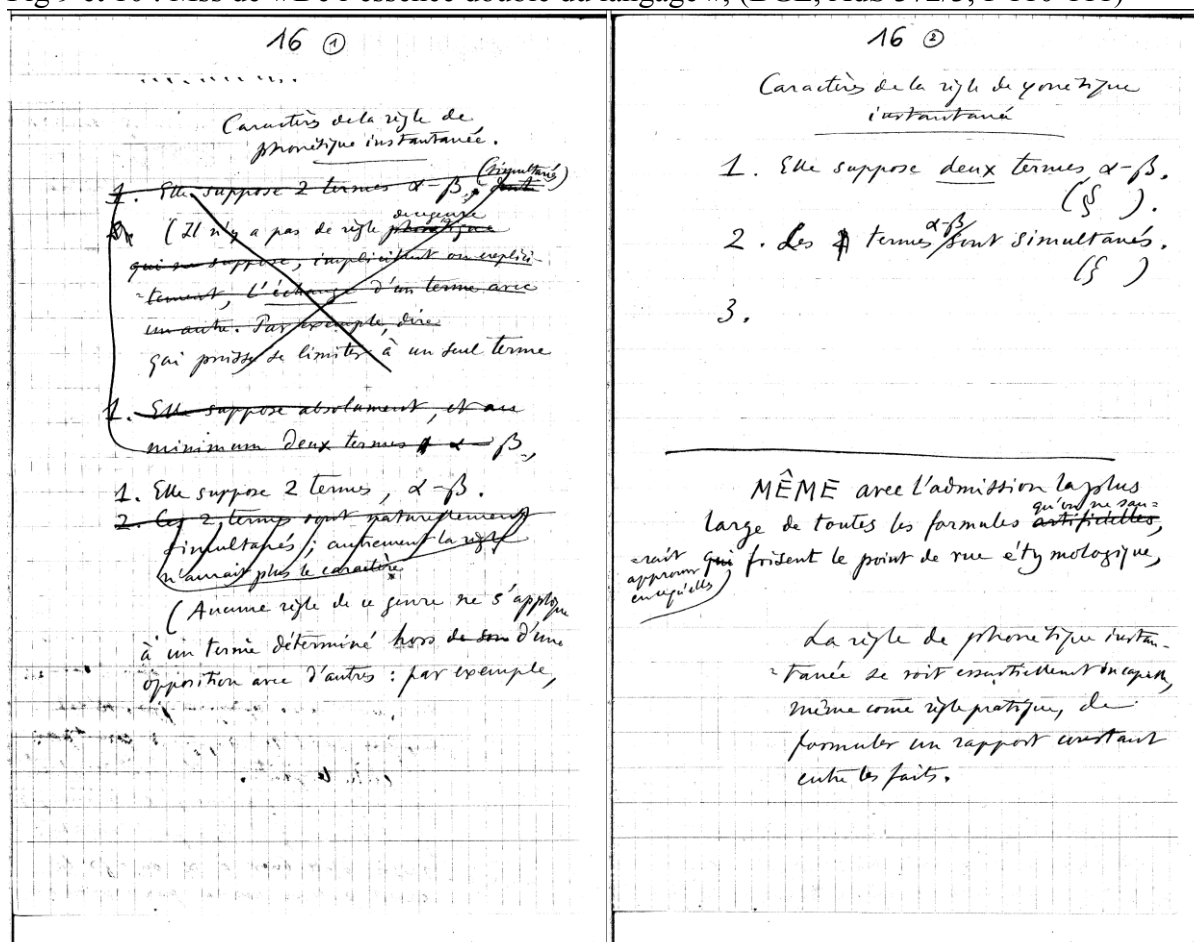 Fig 9 et 10 : Mss de «De l'essence double du langage», (BGE, AdS 372/3, f 110-111)
16 ①
Caractères de la règle de
phonétique instantanée.
1. Elle suppose 2 termes α-β, (simultanés) dont
(Il n'y a pas de règle phonétique de ce genre
qui ne suppose, implicitement ou explici-
-tement, l'échange d'un terme avec
un autre. Par exemple, dire
qui puisse se limiter à un seul terme
1. Elle suppose absolument, et au
minimum deux termes α - β,
1. Elle suppose 2 termes, α-β.
2. Ces 2 termes sont naturellement
simultanés ; autrement la règle
n'aurait plus le caractère
(Aucune règle de ce genre ne s'applique
à un terme déterminé hors de son d'une
opposition avec d'autres : par exemple,
16 ②
Caractères de la règle de phonétique
instantané
1. Elle suppose deux termes, α-β.
(§ ).
2. Les termes α-β sont simultanés.
(§ )
3.
MÊME avec l'admission la plus
large de toutes les formules artificielles, qu'on ne sau-
-rait approuver et qui frisent le point de vue étymologique,
La règle de phonétique instan-
-tanée se voit essentiellement incapable,
même come règle pratique, de
formuler un rapport constant
entre les faits.